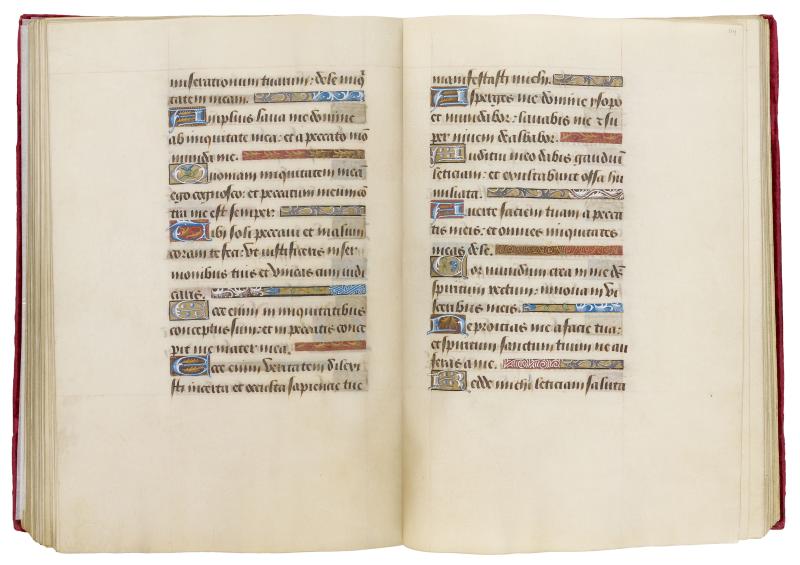 miserationum tuarum: dele iniq̃
tatem meam.
Amplius lava me domine
ab iniquitate mea: et a peccato mõ
munda me.
Quoniam iniquitatem meã
ego cognosco: et peccatum meum cõ
tra me est semper.
Tibi soli peccavi et malum
coram te feci: ut iustificeris in ser
monibus tuis et vincas cum iudi
caris.
Ecce enim in iniquitatibus
conceptus sum: et in peccatis conce
pit me mater mea.
Ecce enim veritatem dilexi
sti incerta et occulta sapiencie tue
manifestasti michi.
Asperges me domine ysopo
et mundabor: lavabis me et su
per nivem dealbabor.
Auditui meo dabis gaudiũ
leticiam: et exultabunt ossa hu
miliata.
Averte faciem tuam a pecca
tis meis: et omnes iniquitates
meas dele.
Cor mundum crea in me dẽ
spiritum rectum: innova in vi
sceribus meis.
Ne proicias me a facie tua:
et spiritum sanctum tuum ne au
feras a me.
Redde michi leticiam saluta